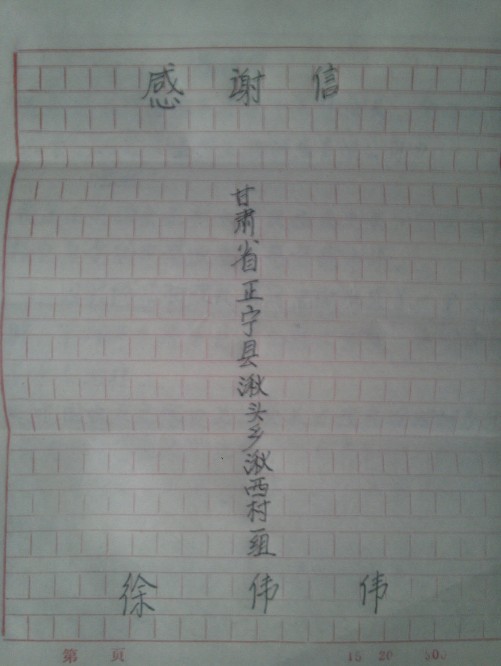 感谢信
甘肃省正宁县湫头乡湫西村一组
徐伟伟
第 页
15 20